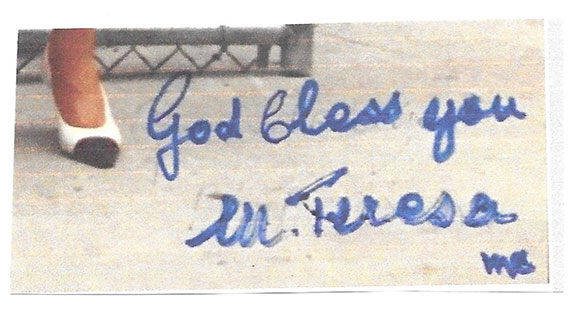 God bless you
M. Teresa
mc